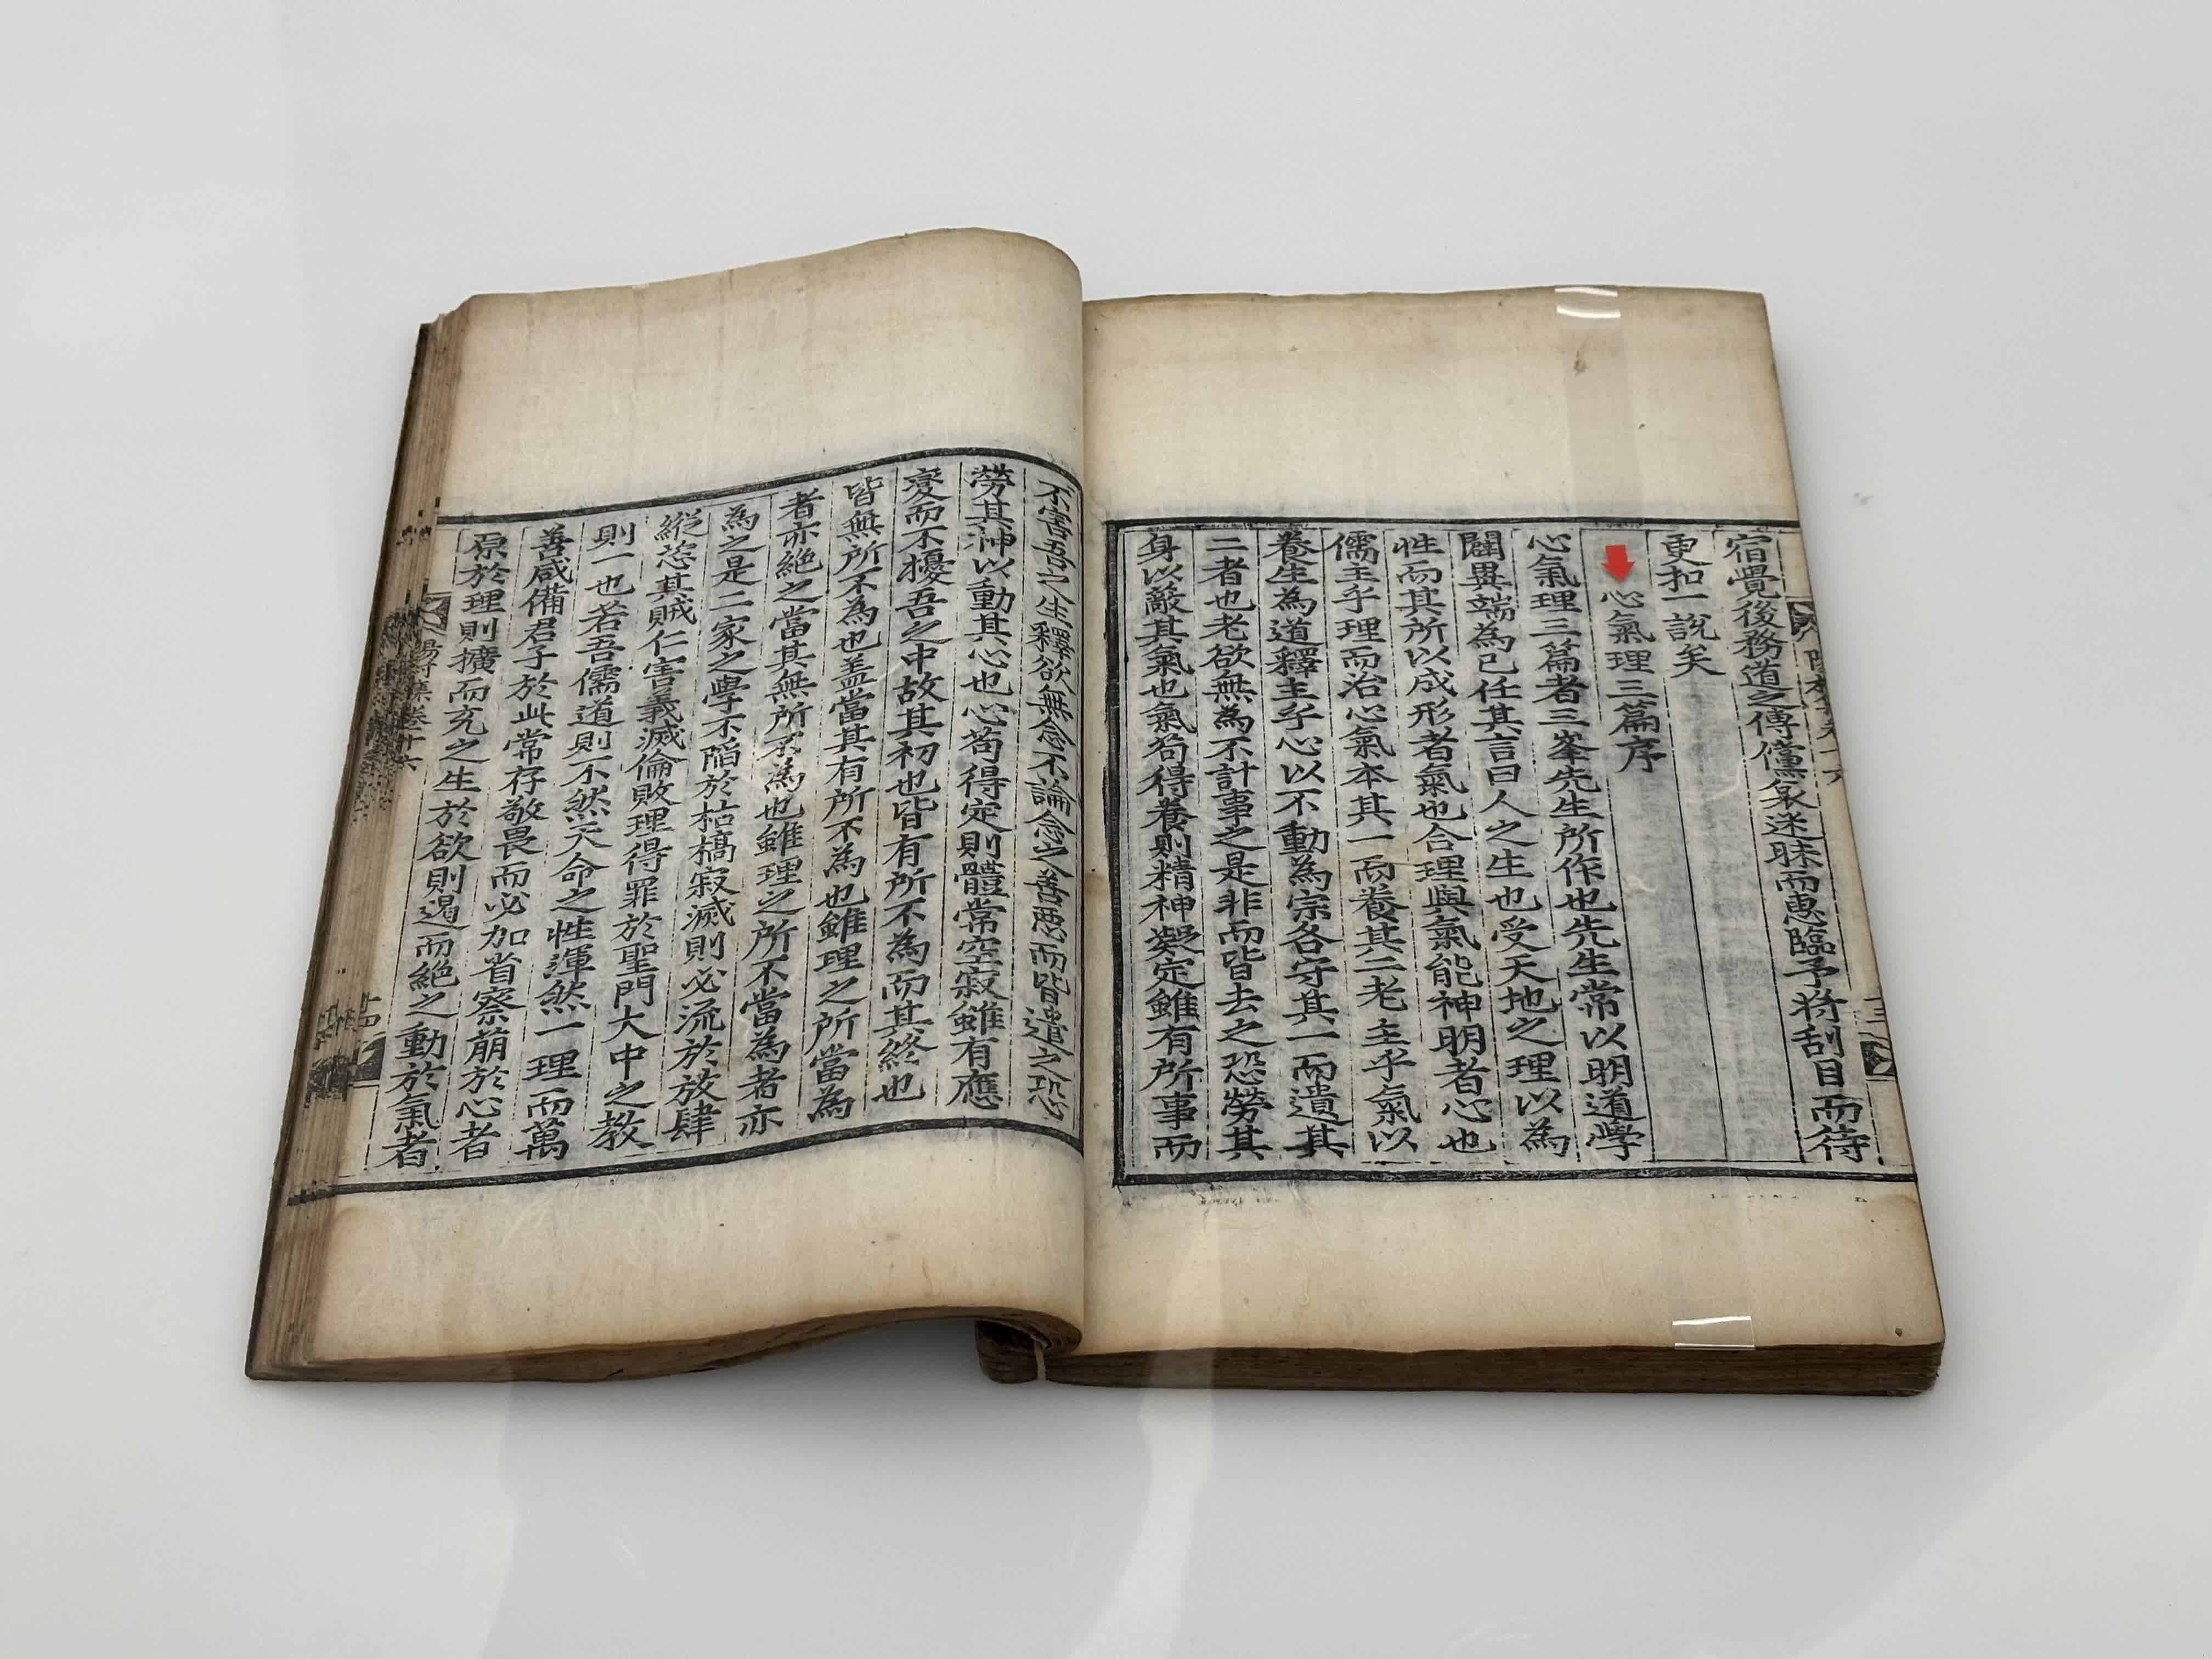 宿覺後務道之傳儻哀迷昧而惠臨予將刮目而待
更扣一說矣
心氣理三篇序
心氣理三篇者三峯先生所作也先生常以明道學
闢異端為已任其言曰人之生也受天地之理以為
性而其所以成形者氣也合理與氣能神明者心也
儒主乎理而治心氣本其一而養其二老主乎氣以
養生為道釋主乎心以不動為宗各守其一而遺其
二者也老欲無為不計事之是非而皆去之恐勞其
身以敝其氣也氣苟得養則精神凝定雖有所事而
不害吾之生釋欲無念不論念之善惡而皆遣之恐
勞其神以動其心也心苟得定則體常空寂雖有應
變而不擾吾之中故其初也皆有所不為而其終也
皆無所不為也盖當其有所不為也雖理之所當為
者亦絶之當其無所不為也雖理之所不當為者亦
為之是二家之學不陷於枯槁寂滅則必流於放肆
縱恣其賊仁害義滅倫敗理得罪於聖門大中之教
則一也若吾儒道則不然天命之性渾然一理而萬
善咸備君子於此常存敬畏而必加省察萌於心者
原於理則擴而充之生於欲則遏而絶之動於氣者
陽村集卷十六
十四